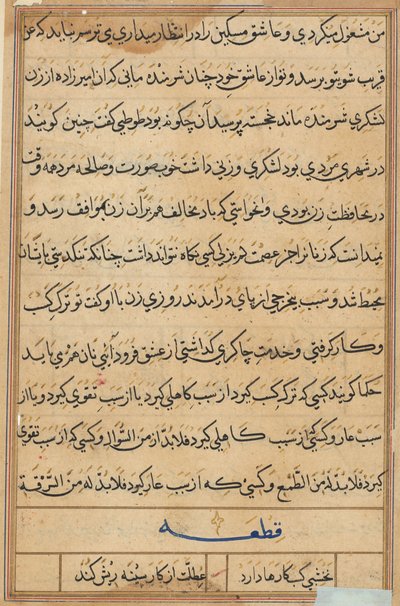 من مشغول میکردي و عاشق مسکین را در انتظار میداري می ترسم نباید که عن
قریب شوي تو برسد و تو از عاشق خود چنان شرمنده ماني که ان امیرزاده از زن
لشکري شرمنده ماند خجسته پرسید آن چگونه بود طوطي کفت چنین کویند
در شهري مردي بود لشکري و زني داشت خوب صورت و صالحه مرد همه وقت
در محافظت زن بودي و نخواستي که باد مخالف هم بر آن زن موافق رسد و
نمیدانست که زنانرا جز عصمت عزیزلي کسی نکاه نتواند داشت چنانکه تنکدستي بایشان
محیط شد و سبب بیخرجي از پاي در آمدند روزي زن با او کفت تو ترک کسب
و کار کرفتي و خدمت چاکري کذاشتي از عشق فرود آئي نان هم می باید
حکما کویند کسی که ترک کسب کیرد از سبب کاهلي کیرد یا از سبب تقوي کیرد و یا از
سبب عار و کسی از سبب کاهلي کیرد فلا بد له من السؤال و کسی که از سبب تقوي
کیرد فلا بد له من الطمع و کسی که از سبب عار کیرد فلا بد له من السرقة
قطعه
نخشبي کسب کارها دارد عطلت از کار سینه ریش کند